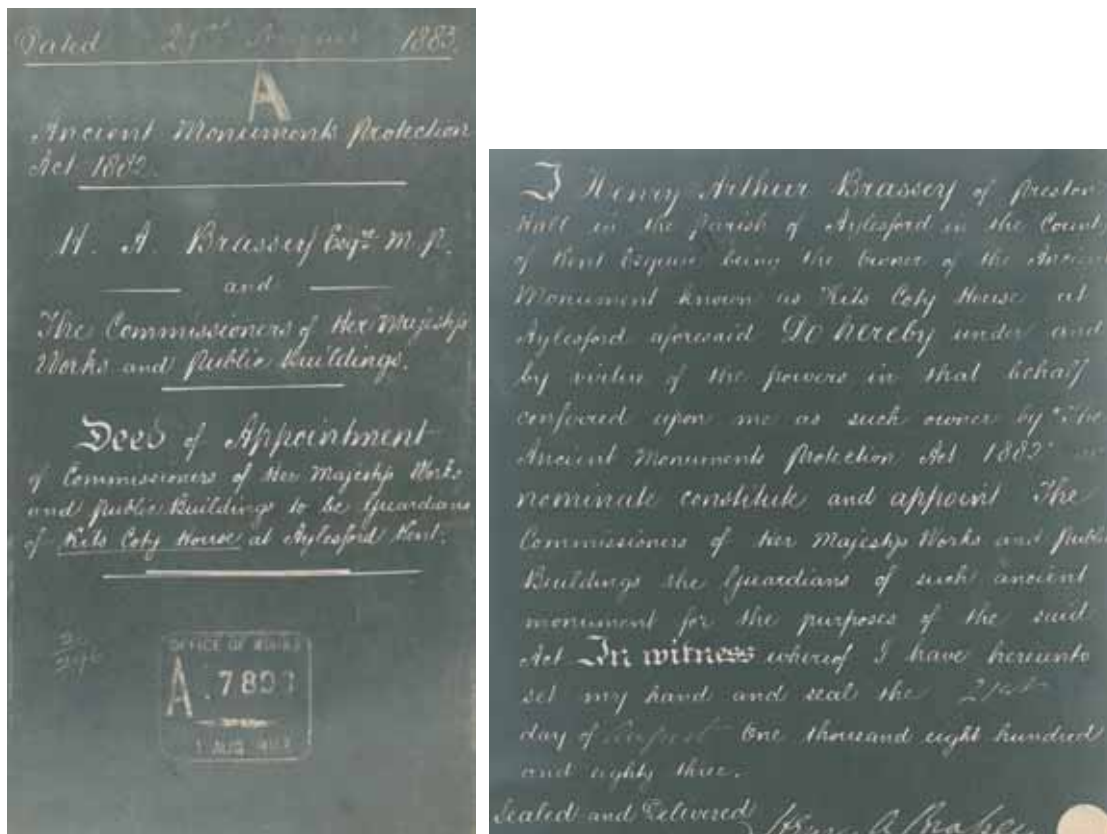 Dated 21st August 1883.
A
Ancient Monuments Protection
Act 1882.
H. A. Brassey Esqre. M.P.
and
The Commissioners of Her Majesty's
Works and Public Buildings.
Deed of Appointment
of Commissioners of Her Majesty's Works
and Public Buildings to be Guardians
of Kits Coty House at Aylesford Kent.
OFFICE OF WORKS
A
AUG
I Henry Arthur Brassey of Preston
Hall in the Parish of Aylesford in the County
of Kent Esquire being the Owner of the Ancien
Monument known as Kits Coty House at
Aylesford aforesaid Do hereby under and
by virtue of the powers in that behalf
conferred upon me as such owner by "The
Ancient Monuments Protection Act 1882"
nominate constitute and appoint The
Commissioners of Her Majesty's Works and Public
Buildings the Guardians of such ancient
monument for the purposes of the said
Act In witness whereof I have hereunto
set my hand and seal the 21st
day of August One thousand eight hundred
and eighty three.
Sealed and Delivered